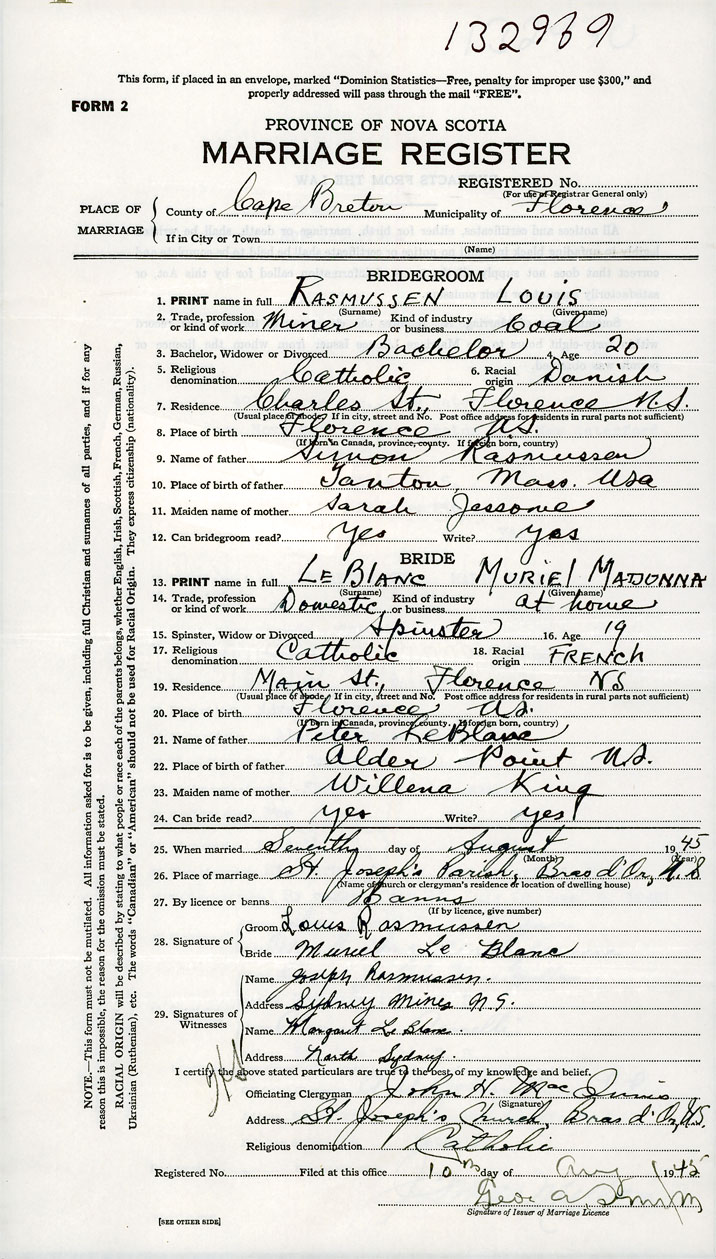 132969
This form, if placed in an envelope, marked "Dominion Statistics—Free, penalty for improper use $300," and
properly addressed will pass through the mail "FREE".
FORM 2
PROVINCE OF NOVA SCOTIA
MARRIAGE REGISTER
REGISTERED No.
(For use of Registrar General only)
PLACE OF MARRIAGE
County of Cape Breton Municipality of Florence
If in City or Town
(Name)
BRIDEGROOM
1. PRINT name in full RASMUSSEN LOUIS
(Surname) (Given name)
2. Trade, profession or kind of work Miner Kind of industry or business Coal
3. Bachelor, Widower or Divorced Bachelor 4. Age 20
5. Religious denomination Catholic 6. Racial origin Danish
7. Residence Charles St., Florence N.S.
(Usual place of abode. If in city, street and No. Post office address for residents in rural parts not sufficient)
8. Place of birth Florence N.S.
(If born in Canada, province, county. If foreign born, country)
9. Name of father Simon Rasmussen
10. Place of birth of father Tanton, Mass. USA
11. Maiden name of mother Sarah Jessome
12. Can bridegroom read? Yes Write? yes
BRIDE
13. PRINT name in full LE BLANC MURIEL MADONNA
(Surname) (Given name)
14. Trade, profession or kind of work Domestic Kind of industry or business at home
15. Spinster, Widow or Divorced Spinster 16. Age 19
17. Religious denomination Catholic 18. Racial origin FRENCH
19. Residence Main St., Florence NS
(Usual place of abode. If in city, street and No. Post office address for residents in rural parts not sufficient)
20. Place of birth Florence N.S.
(If born in Canada, province, county. If foreign born, country)
21. Name of father Peter LeBlanc
22. Place of birth of father Alder Point N.S.
23. Maiden name of mother Willena King
24. Can bride read? yes Write? yes
25. When married Seventh day of August 1945
(Month) (Year)
26. Place of marriage St. Joseph's Parish, Bras d'Or, N.S
(Name of church or clergyman's residence or location of dwelling house)
27. By licence or banns Banns
(If by licence, give number)
28. Signature of
Groom Louis Rasmussen
Bride Muriel Le Blanc
29. Signatures of Witnesses
Name Joseph Rasmussen.
Address Sydney Mines N.S.
Name Margaret Le Blanc.
Address North Sydney.
I certify the above stated particulars are true to the best of my knowledge and belief.
Officiating Clergyman John H. MacInnis
(Signature)
Address St. Joseph's Church, Bras d'Or, N.S.
Religious denomination Catholic
Registered No. Filed at this office 10th day of Aug 1945
Signature of Issuer of Marriage Licence
[SEE OTHER SIDE]
NOTE.—This form must not be mutilated. All information asked for is to be given, including full Christian and surnames of all parties, and if for any
reason this is impossible, the reason for the omission must be stated.
RACIAL ORIGIN will be described by stating to what people or race each of the parents belongs, whether English, Irish, Scottish, French, German, Russian,
Ukrainian (Ruthenian), etc. The words "Canadian" or "American" should not be used for Racial Origin. They express citizenship (nationality).